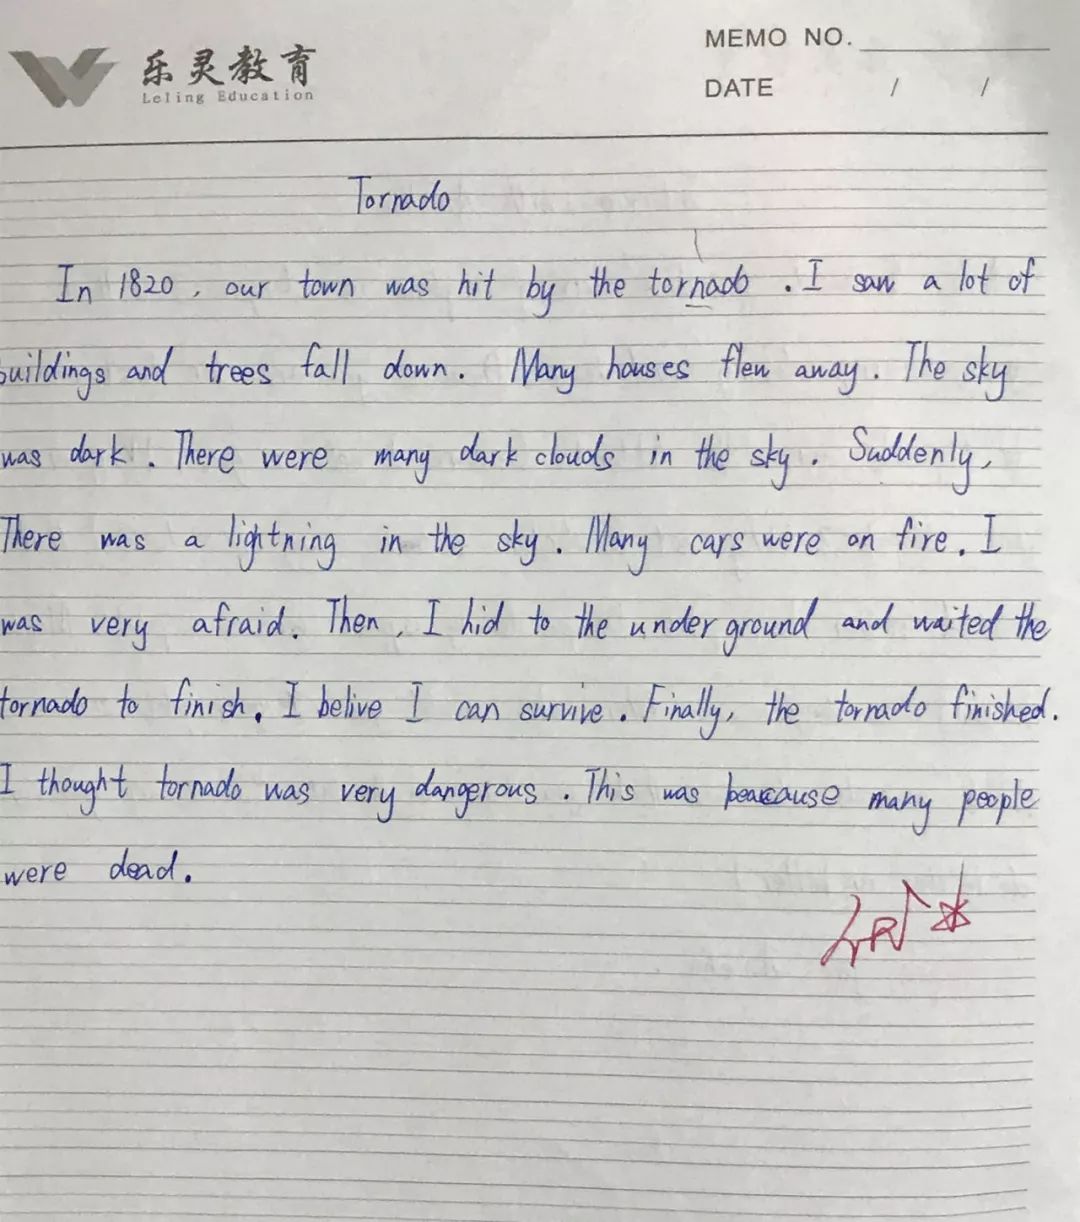 乐灵教育
Leling Education
MEMO NO.
DATE / /
Tornado
In 1820, our town was hit by the tornado. I saw a lot of
buildings and trees fall down. Many houses flew away. The sky
was dark. There were many dark clouds in the sky. Suddenly,
There was a lightning in the sky. Many cars were on fire. I
was very afraid. Then, I hid to the under ground and waited the
tornado to finish. I belive I can survive. Finally, the tornado finished.
I thought tornado was very dangerous. This was beacause many people
were dead.